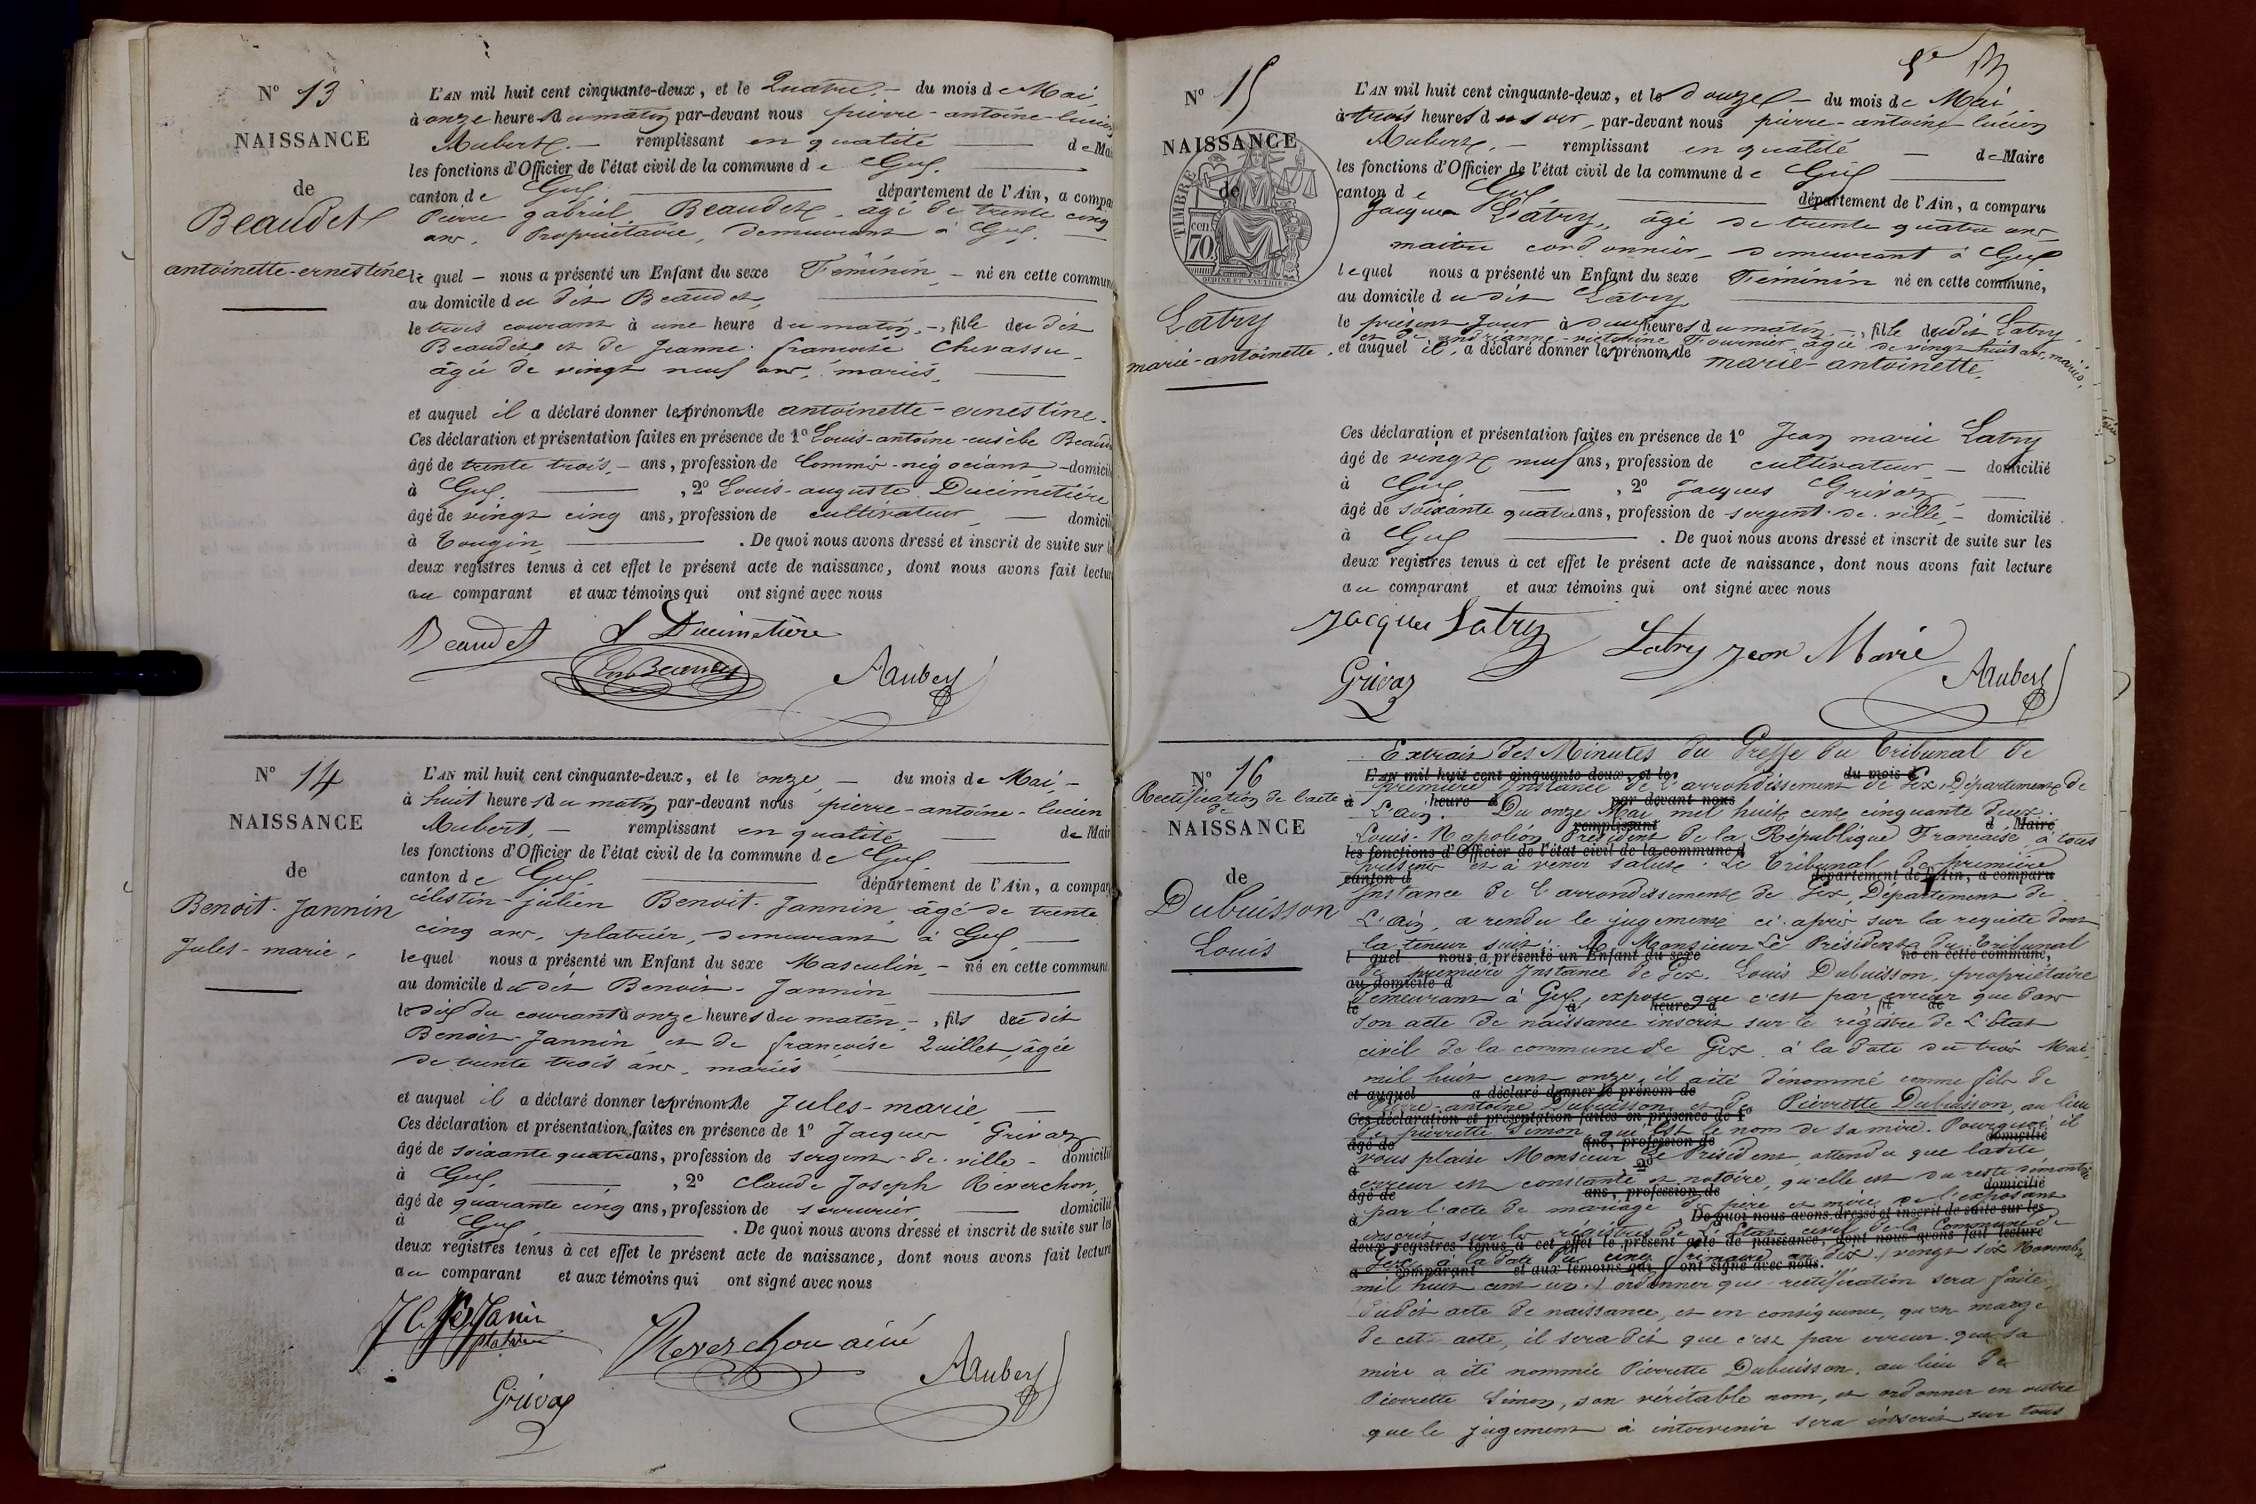 N° 13
NAISSANCE
de
Beaudet
antoinette-ernestine
L'AN mil huit cent cinquante-deux, et le Quatre du mois de Mai
à onze heures du matin par-devant nous pierre-antoine-lucien
Aubert. — remplissant en qualité de Mai
les fonctions d'Officier de l'état civil de la commune de Gex.
canton de Gex. département de l'Ain, a compa
Pierre gabriel Beaudet, âgé de trente cinq
ans, Propriétaire, demeurant à Gex.
lequel — nous a présenté un Enfant du sexe Féminin — né en cette commun
au domicile du dit Beaudet,
le trois courant à une heure du matin, —, fille du dit
Beaudet et de Jeanne francoise Chevassu
âgée de vingt neuf ans, mariés,
et auquel il a déclaré donner les prénoms de antoinette-ernestine.
Ces déclaration et présentation faites en présence de 1° Louis-antoine-eusèbe Beaud
âgé de trente trois, — ans, profession de Commis-négociant — domicil
à Gex. , 2° Louis-auguste Ducimetière
âgé de vingt cinq ans, profession de cultivateur — domicil
à Tougin, . De quoi nous avons dressé et inscrit de suite sur l
deux registres tenus à cet effet le présent acte de naissance, dont nous avons fait lectur
au comparant et aux témoins qui ont signé avec nous
Beaudet
Ducimetière
Aubert
N° 14
NAISSANCE
de
Benoit-Jannin
Jules-marie,
L'AN mil huit cent cinquante-deux, et le onze, — du mois de Mai, —
à huit heures du matin par-devant nous pierre-antoine-lucien
Aubert, — remplissant en qualité de Mair
les fonctions d'Officier de l'état civil de la commune de Gex
canton de Gex. département de l'Ain, a compar
célestin-julien Benoit-Jannin, âgé de trente
cinq ans, platrier, demeurant à Gex, —
lequel nous a présenté un Enfant du sexe Masculin, — né en cette commune
au domicile du dit Benoit-Jannin
le dix du courant à onze heures du matin —, fils du dit
Benoit-Jannin et de francoise Quillet, âgée
de trente trois ans, mariés
et auquel il a déclaré donner les prénoms de Jules-marie —
Ces déclaration et présentation faites en présence de 1° Jacques Grivaz
âgé de soixante quatre ans, profession de sergent-de-ville — domicilié
à Gex, , 2° Claude Joseph Reverchon,
âgé de quarante cinq ans, profession de serrurier domicilié
à Gex . De quoi nous avons dressé et inscrit de suite sur les
deux registres tenus à cet effet le présent acte de naissance, dont nous avons fait lecture
au comparant et aux témoins qui ont signé avec nous
Reverchon ainé
Aubert
Grivaz
N° 15
NAISSANCE
de
TIMBRE
cen.
70
Latry
marie-antoinette,
L'AN mil huit cent cinquante-deux, et le douze — du mois de Mai
à trois heures du soir, par-devant nous pierre-antoine lucien
Aubert, — remplissant en qualité — de Maire
les fonctions d'Officier de l'état civil de la commune de Gex
canton de Gex. département de l'Ain, a comparu
Jacques Latry, âgé de trente quatre ans
maitre cordonnier, demeurant à Gex
lequel nous a présenté un Enfant du sexe Féminin né en cette commune,
au domicile du dit Latry
le présent Jour à deux heures du matin —, fille du dit Latry
et de andrianne-victorine Fournier âgée de vingt huit ans, mariés,
et auquel il a déclaré donner les prénoms de marie-antoinette,
Ces déclaration et présentation faites en présence de 1° Jean marie Latry
âgé de vingt neuf ans, profession de cultivateur — domicilié
à Gex — , 2° Jacques Grivaz
âgé de soixante quatre ans, profession de sergent-de-ville, — domicilié
à Gex . De quoi nous avons dressé et inscrit de suite sur les
deux registres tenus à cet effet le présent acte de naissance, dont nous avons fait lecture
au comparant et aux témoins qui ont signé avec nous
Jacques Latry
Latry Jean Marie
Grivaz
Aubert
N° 16
Rectification de l'acte
de
NAISSANCE
de
Dubuisson
Louis
Extrait des Minutes du Greffe du Tribunal de
L'AN mil huit cent cinquante-deux, et le du mois d
première Instance de l'arrondissement de Gex, Département de
à heure d par-devant nous
L'ain. Du onze Mai mil huit cent cinquante deux.
remplissant d Maire
Louis-Napoléon, président de la République Française, à tous
les fonctions d'Officier de l'état civil de la commune d
présens et à venir salut. Le Tribunal de première
canton d département de l'Ain, a comparu
Instance de l'arrondissement de Gex, Département de
L'ain, a rendu le jugement ci-après sur la requête dont
la teneur suit: A Monsieur Le Président du Tribunal
l quel nous a présenté un Enfant du sexe né en cette commune,
de première Instance de Gex. Louis Dubuisson, propriétaire
au domicile d
demeurant à Gex, expose que c'est par erreur que dans
le à heure d , fil de
son acte de naissance inscrit sur le registre de L'Etat
civil de la commune de Gex à la date du trois Mai,
mil huit cent onze, il a été dénommé comme fils de
et auquel a déclaré donner le prénom de
Pierre-antoine Dubuisson et de Pierrette Dubuisson, au lieu
Ces déclaration et présentation faites en présence de 1°
de pierrette Simon, qui est le nom de sa mère. Pourquoi il
âgé de ans, profession de domicilié
vous plaise Monsieur le Président, attendu que ladite
à 2°
erreur est constante et notoire, qu'elle est du reste démontrée
âgé de ans, profession de domicilié
par l'acte de mariage des père et mère de l'exposant
à De quoi nous avons dressé et inscrit de suite sur les
inscrit sur les régistres de l'Etat civil de la Commune de
deux registres tenus à cet effet le présent acte de naissance, dont nous avons fait lecture
Gex, à la date du cinq frimaire an dix (vingt six Novembre
a comparant et aux témoins qui ont signé avec nous.
mil huit cent un.) ordonner que rectification sera faite
dudit acte de naissance, et en conséquence, qu'en marge
de cet acte, il sera dit que c'est par erreur que sa
mère a été nommée Pierrette Dubuisson, au lieu de
Pierrette Simon, son véritable nom, et ordonner en outre
que le jugement à intervenir sera inscrit sur tous